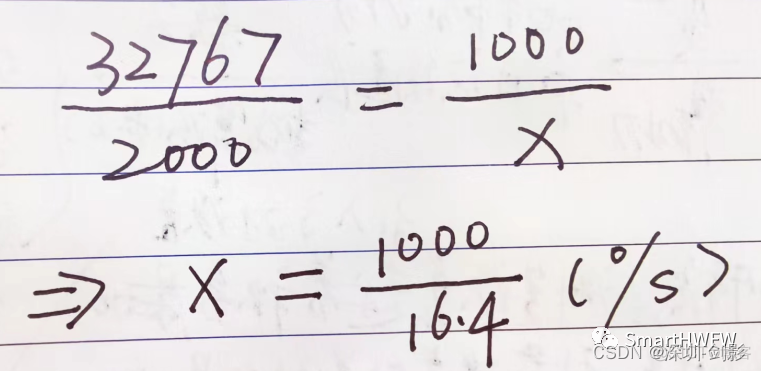 32767/2000 = 1000/X
⇒ X = 1000/16.4 (°/s)
SmartHWFW
CSDN @深圳-剑影客